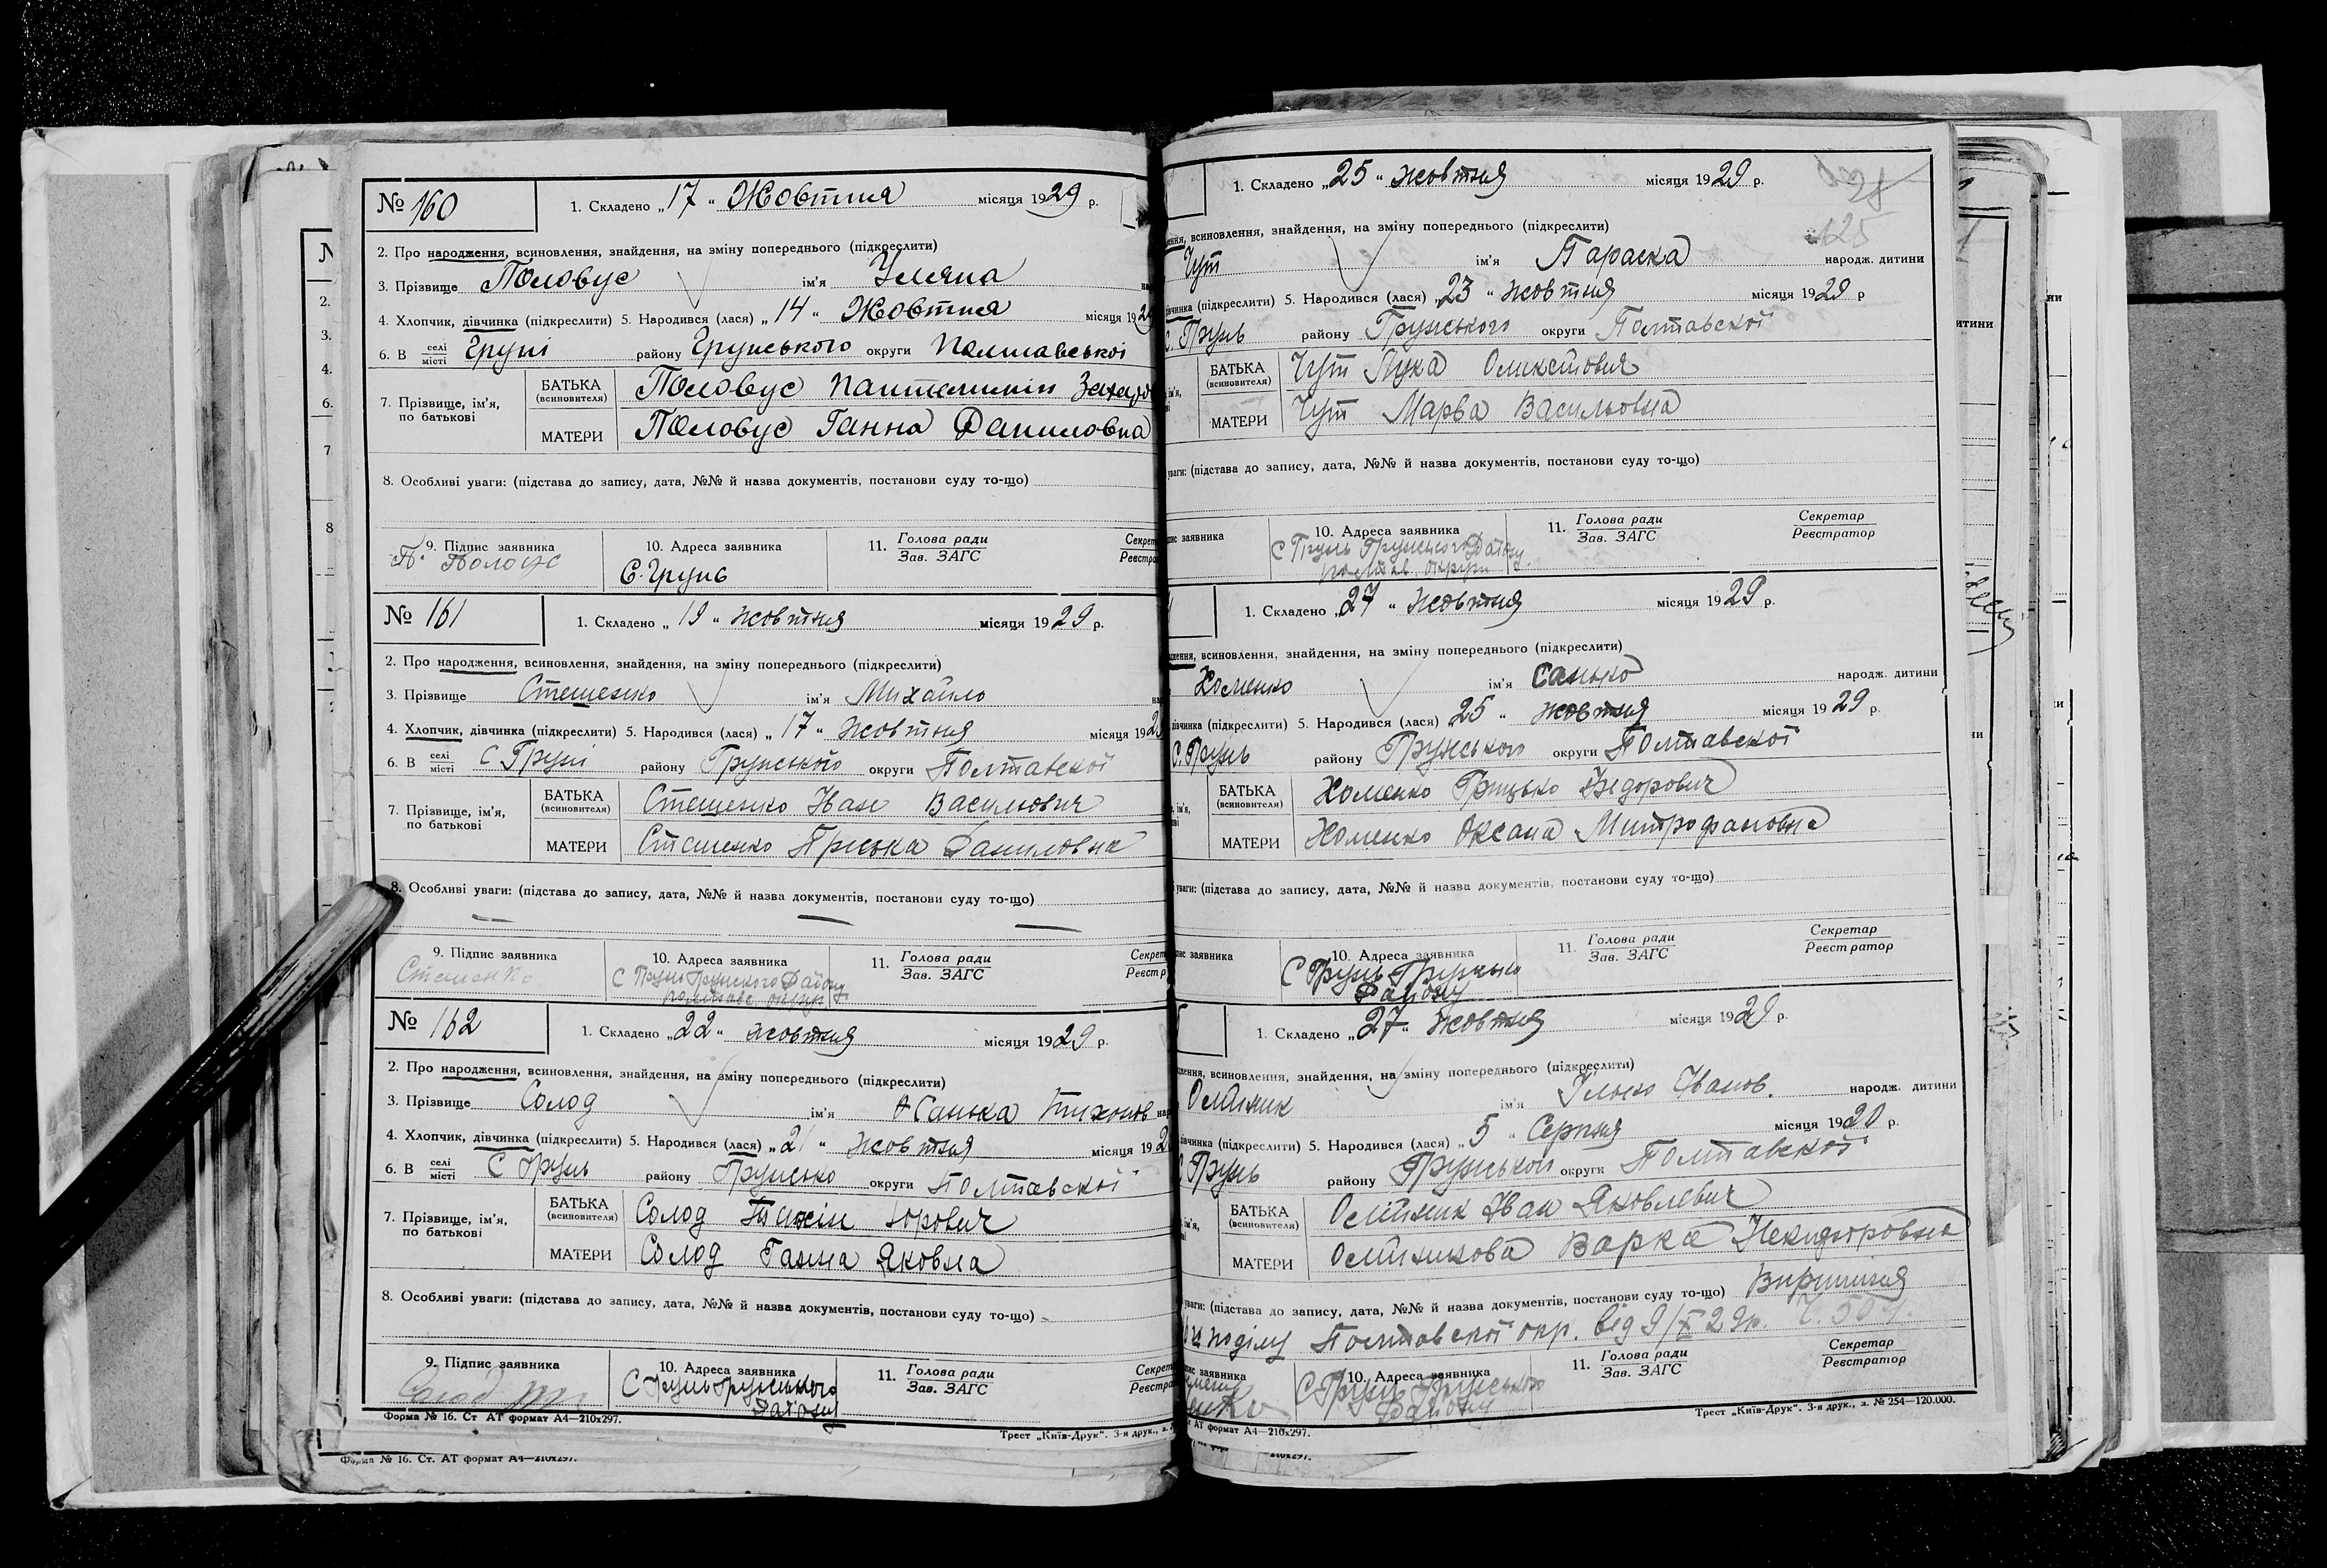 № 160
1. Складено „17" Жовтня місяця 1929 р.
2. Про народження, всиновлення, знайдення, на зміну попереднього (підкреслити)
3. Прізвище Половус ім'я Уляна
4. Хлопчик, дівчинка (підкреслити) 5. Народився (лася) „14" Жовтня місяця 192
6. В селі місті Груні району Грунського округи Полтавської
7. Прізвище, ім'я, по батькові
БАТЬКА (всиновителя) Половус Пантилимін
МАТЕРИ Половус Ганна Даниловна
8. Особливі уваги: (підстава до запису, дата, №№ й назва документів, постанови суду то-що)
9. Підпис заявника
10. Адреса заявника
11. Голова ради Зав. ЗАГС
С. Грунь
№ 161
1. Складено „19" жовтня місяця 1929 р.
2. Про народження, всиновлення, знайдення, на зміну попереднього (підкреслити)
3. Прізвище Стешенко ім'я Михайло
4. Хлопчик, дівчинка (підкреслити) 5. Народився (лася) „17" жовтня місяця 192
6. В селі місті С Груні району Грунського округи Полтавскої
7. Прізвище, ім'я, по батькові
БАТЬКА (всиновителя) Стешенко Іван Васильович
МАТЕРИ Стешенко Пріська Даниловна
8. Особливі уваги: (підстава до запису, дата, №№ й назва документів, постанови суду то-що)
9. Підпис заявника
10. Адреса заявника
11. Голова ради Зав. ЗАГС
Стешенко
№ 162
1. Складено „22" жовтня місяця 1929 р.
2. Про народження, всиновлення, знайдення, на зміну попереднього (підкреслити)
3. Прізвище Солод ім'я Санька Тихонов
4. Хлопчик, дівчинка (підкреслити) 5. Народився (лася) „21" жовтня місяця 192
6. В селі місті С Грунь району Грунсько округи Полтавскої
7. Прізвище, ім'я, по батькові
БАТЬКА (всиновителя) Солод Юрович
МАТЕРИ Солод Ганна Яковна
8. Особливі уваги: (підстава до запису, дата, №№ й назва документів, постанови суду то-що)
9. Підпис заявника
10. Адреса заявника
11. Голова ради Зав. ЗАГС
Солод
С Грунь Грунського
Району
Форма № 16. Ст АТ формат А4—210х297.
Трест „Київ-Друк". 3-я друк., з.
Форма № 16. Ст. АТ формат А4—210х297.
28
125
1. Складено „25" жовтня місяця 1929 р.
всиновлення, знайдення, на зміну попереднього (підкреслити)
Чут ім'я Параска народж. дитини
(підкреслити) 5. Народився (лася) „23" жовтня місяця 1929 р
С. Грунь району Грунського округи Полтавскої
БАТЬКА (всиновителя) Чут Лука Олексійович
МАТЕРИ Чут Марва Васильовна
уваги: (підстава до запису, дата, №№ й назва документів, постанови суду то-що)
заявника
10. Адреса заявника
11. Голова ради Зав. ЗАГС
Секретар Реєстратор
С Грунь Грунського Району
Полтав. округи
1. Складено „27" жовтня місяця 1929 р.
всиновлення, знайдення, на зміну попереднього (підкреслити)
Хоменко ім'я Санько народж. дитини
(підкреслити) 5. Народився (лася) 25" жовтня місяця 1929 р.
С. Грунь району Грунського округи Полтавскої
БАТЬКА (всиновителя) Хоменко Грицько Федорович
МАТЕРИ Хоменко Оксана Митрофановна
уваги: (підстава до запису, дата, №№ й назва документів, постанови суду то-що)
заявника
10. Адреса заявника
11. Голова ради Зав. ЗАГС
Секретар Реєстратор
С Грунь
Району
1. Складено „27" жовтня місяця 1929 р.
всиновлення, знайдення, на зміну попереднього (підкреслити)
Олійник ім'я Ілько Іванов. народж. дитини
(підкреслити) 5. Народився (лася) „5" Серпня місяця 1920 р.
Грунь району Грунського округи Полтавскої
БАТЬКА (всиновителя) Олійник Іван Яковлевич
МАТЕРИ Олійникова Варка
уваги: (підстава до запису, дата, №№ й назва документів, постанови суду то-що)
Полтавскої окр. від 9/X 29р.
заявника
10. Адреса заявника
11. Голова ради Зав. ЗАГС
Секретар Реєстратор
С Грунь Грунського
Району
АТ формат А4—210х297.
Трест „Київ-Друк". 3-я друк., з. № 254—120.000.